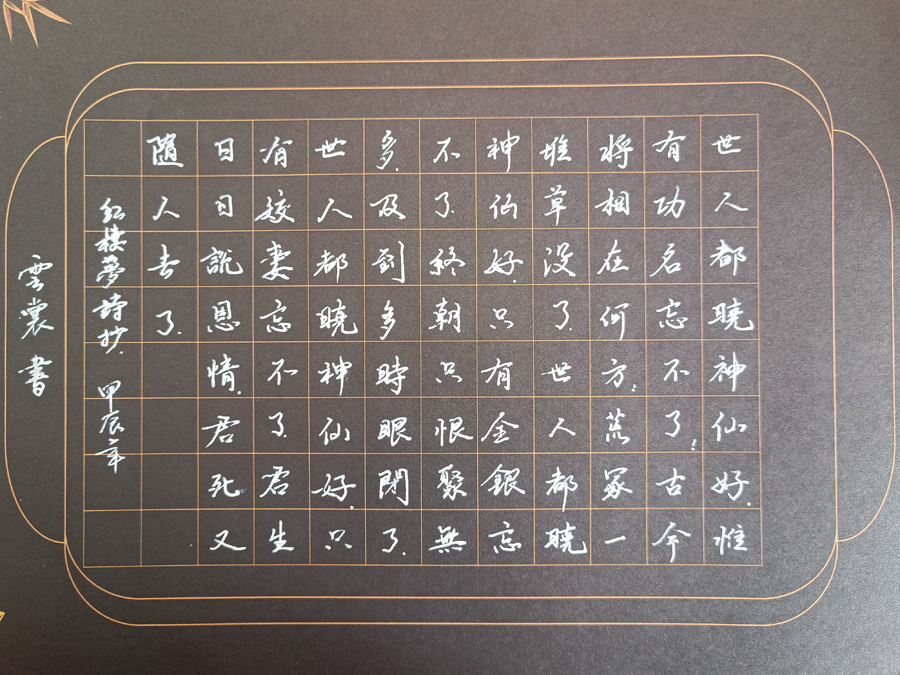 世人都曉神仙好惟
有功名忘不了古今
將相在何方荒冢一
堆草沒了世人都曉
神仙好只有金銀忘
不了終朝只恨聚無
多及到多時眼閉了
世人都曉神仙好只
有姣妻忘不了君生
日日說恩情君死又
隨人去了
紅樓夢詩抄 甲辰年
雲裳書